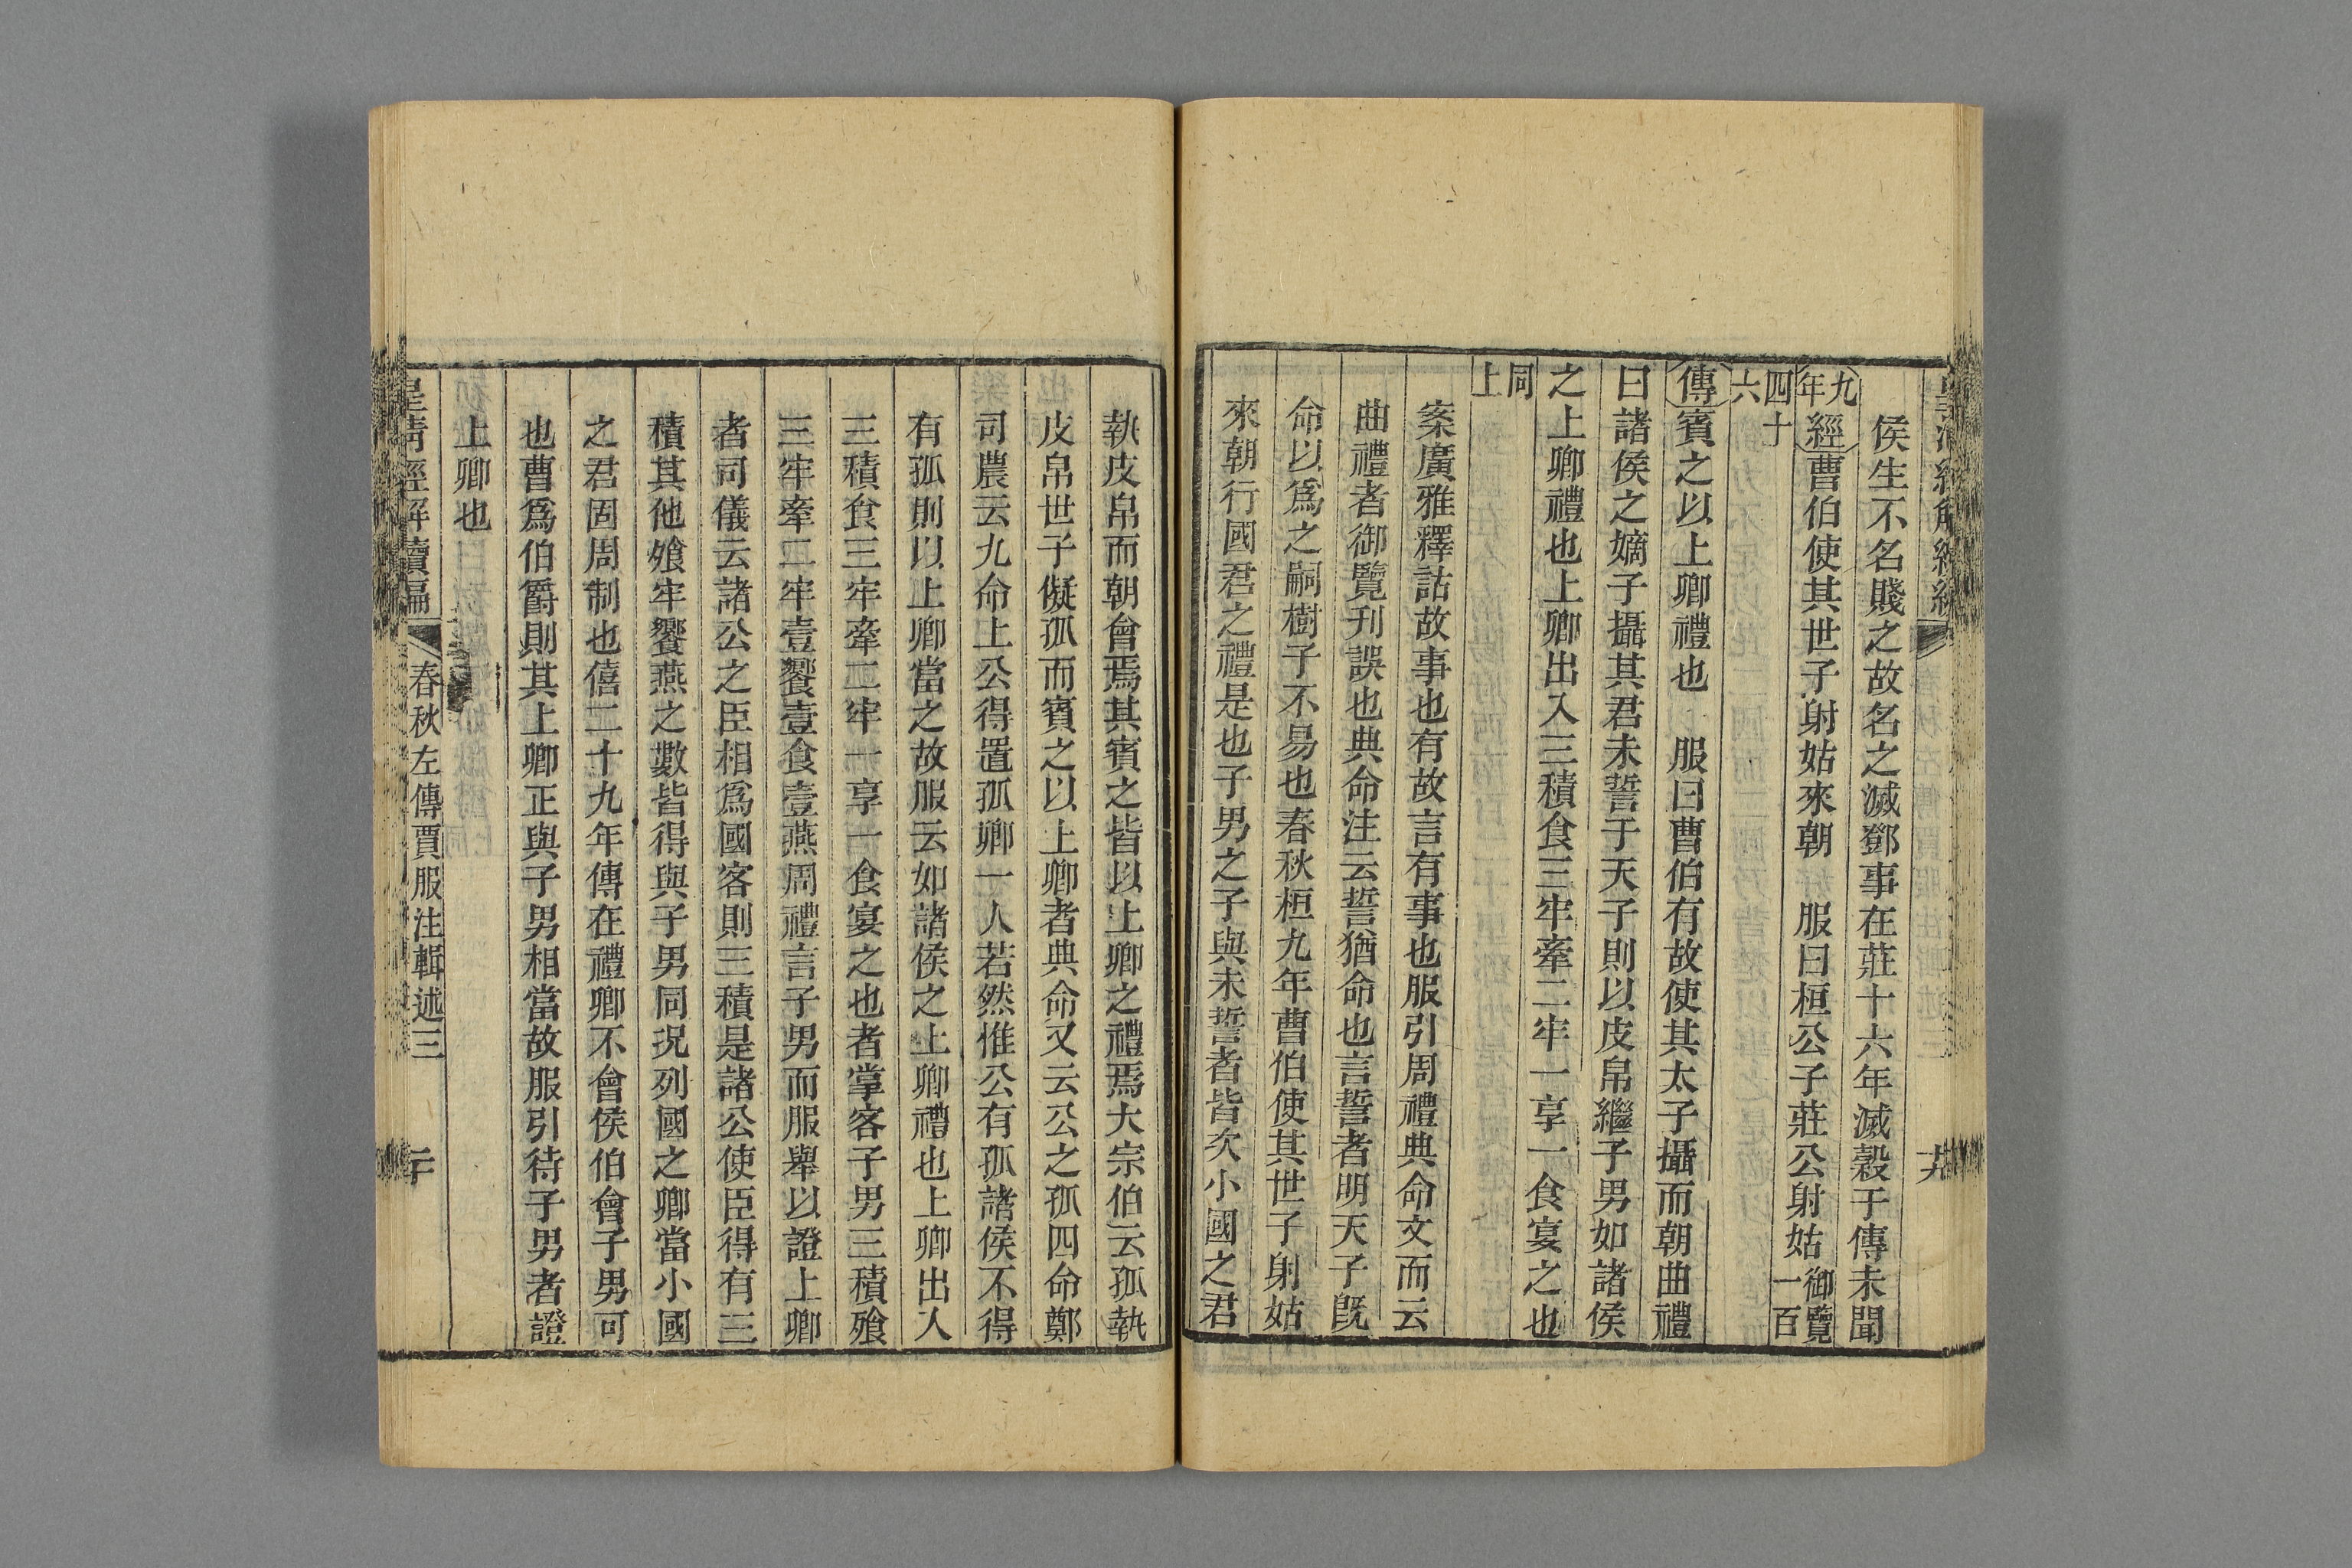 侯生不名賤之故名之滅鄧事在莊十六年滅穀于傳未聞
九年經曹伯使其世子射姑來朝　服曰桓公子莊公射姑御覽一百
四十六
傳賓之以上卿禮也　服曰曹伯有故使其太子攝而朝曲禮
曰諸侯之嫡子攝其君未誓于天子則以皮帛繼子男如諸侯
之上卿禮也上卿出入三積食三牢牽二牢一享一食宴之也
同上
案廣雅釋詁故事也有故言有事也服引周禮典命文而云
曲禮者御覽刊誤也典命注云誓猶命也言誓者明天子旣
命以爲之嗣樹子不易也春秋桓九年曹伯使其世子射姑
來朝行國君之禮是也子男之子與未誓者皆次小國之君
執皮帛而朝會焉其賓之皆以上卿之禮焉大宗伯云孤執
皮帛世子儗孤而賓之以上卿者典命又云公之孤四命鄭
司農云九命上公得置孤卿一人若然惟公有孤諸侯不得
有孤則以上卿當之故服云如諸侯之上卿禮也上卿出入
三積食三牢牽二牢一享一食宴之也者掌客子男三積飱
三牢牽二牢壹饗壹食壹燕周禮言子男而服舉以證上卿
者司儀云諸公之臣相爲國客則三積是諸公使臣得有三
積其他飱牢饗燕之數皆得與子男同況列國之卿當小國
之君固周制也僖二十九年傳在禮卿不會侯伯會子男可
也曹爲伯爵則其上卿正與子男相當故服引待子男者證
上卿也
皇清經解續編　春秋左傳賈服注輯述三　二十